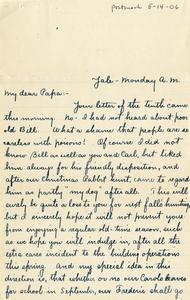 postmark 5-14-06
Yale - Monday A.M.
My dear Papa:-
Your letter of the tenth came
this morning. No - I had not heard about poor
old Bill. What a shame that people are so
careless with poisons! Of course I did not
know Bill as well as you and Carl, but liked
him always for his friendly disposition, and
after our Christmas rabbit hunt, came to regard
him as partly "my dog" after all. This will
surely be quite a loss to you for next falls hunting,
but I sincerely hope it will not prevent you
from enjoying a regular old-time season, such
as we hope you will indulge in, after all the
extra care incident to the building operations
this spring. And my special idea in this
direction is, that whether or no Carl leaves
for school in September, our Frederic shall go